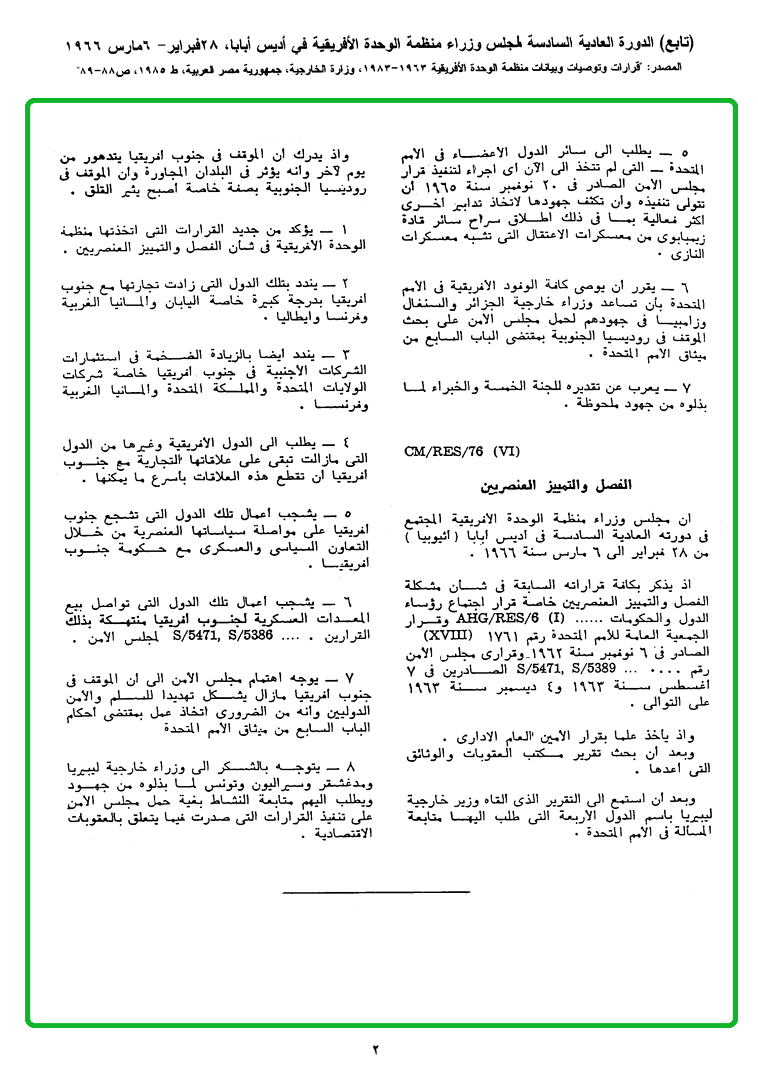 (تابع) الدورة العادية السادسة لمجلس وزراء منظمة الوحدة الأفريقية في أديس أبابا، ٢٨فبراير- ٦مارس ١٩٦٦
المصدر: "قرارات وتوصيات وبيانات منظمة الوحدة الأفريقية ١٩٦٣-١٩٨٣، وزارة الخارجية، جمهورية مصر العربية، ط ١٩٨٥، ص٨٨-٨٩"
٥ — يطلب الى سائر الدول الاعضاء فى الامم
المتحدة — التى لم تتخذ الى الآن اى اجراء لتنفيذ قرار
مجلس الأمن الصادر فى ٢٠ نوفمبر سنة ١٩٦٥ أن
تتولى تنفيذه وأن تكثف جهودها لاتخاذ تدابير أخرى
اكثر فعالية بما فى ذلك اطلاق سراح سائر قادة
زيمبابوى من معسكرات الاعتقال التى تشبه معسكرات
النازى .
٦ — يقرر أن يوصى كافة الوفود الأفريقية فى الأمم
المتحدة بأن تساعد وزراء خارجية الجزائر والسنغال
وزامبيا فى جهودهم لحمل مجلس الأمن على بحث
الموقف فى روديسيا الجنوبية بمقتضى الباب السابع من
ميثاق الأمم المتحدة .
٧ — يعرب عن تقديره للجنة الخمسة والخبراء لما
بذلوه من جهود ملحوظة .
CM/RES/76 (VI)
الفصل والتمييز العنصريين
ان مجلس وزراء منظمة الوحدة الأفريقية المجتمع
فى دورته العادية السادسة فى اديس ابابا ( أثيوبيا )
من ٢٨ فبراير الى ٦ مارس سنة ١٩٦٦ .
اذ يذكر بكافة قراراته السابقة فى شأن مشكلة
الفصل والتمييز العنصريين خاصة قرار اجتماع رؤساء
الدول والحكومات ...... AHG/RES/6 (I) وقرار
الجمعية العامة للأمم المتحدة رقم ١٧٦١ (XVIII)
الصادر فى ٦ نوفمبر سنة ١٩٦٢ وقرارى مجلس الأمن
رقم .... ... S/5471, S/5389 الصادرين فى ٧
أغسطس سنة ١٩٦٣ و٤ ديسمبر سنة ١٩٦٣
على التوالى .
واذ يأخذ علما بقرار الأمين العام الادارى .
وبعد أن بحث تقرير مكتب العقوبات والوثائق
التى أعدها .
وبعد أن استمع الى التقرير الذى القاه وزير خارجية
ليبريا باسم الدول الأربعة التى طلب اليها متابعة
المسألة فى الأمم المتحدة .
واذ يدرك أن الموقف فى جنوب أفريقيا يتدهور من
يوم لآخر وأنه يؤثر فى البلدان المجاورة وأن الموقف فى
روديسيا الجنوبية بصفة خاصة أصبح يثير القلق .
١ — يؤكد من جديد القرارات التى اتخذتها منظمة
الوحدة الأفريقية فى شأن الفصل والتمييز العنصريين .
٢ — يندد بتلك الدول التى زادت تجارتها مع جنوب
أفريقيا بدرجة كبيرة خاصة اليابان والمانيا الغربية
وفرنسا وايطاليا .
٣ — يندد أيضا بالزيادة الضخمة فى استثمارات
الشركات الأجنبية فى جنوب أفريقيا خاصة شركات
الولايات المتحدة والمملكة المتحدة والمانيا الغربية
وفرنسا .
٤ — يطلب الى الدول الأفريقية وغيرها من الدول
التى مازالت تبقى على علاقاتها التجارية مع جنوب
أفريقيا أن تقطع هذه العلاقات بأسرع ما يمكنها .
٥ — يشجب أعمال تلك الدول التى تشجع جنوب
أفريقيا على مواصلة سياساتها العنصرية من خلال
التعاون السياسى والعسكرى مع حكومة جنوب
أفريقيا .
٦ — يشجب أعمال تلك الدول التى تواصل بيع
المعدات العسكرية لجنوب أفريقيا منتهكة بذلك
القرارين . .... S/5471, S/5386 لمجلس الأمن .
٧ — يوجه اهتمام مجلس الأمن الى أن الموقف فى
جنوب أفريقيا مازال يشكل تهديدا للسلم والأمن
الدوليين وأنه من الضرورى اتخاذ عمل بمقتضى أحكام
الباب السابع من ميثاق الأمم المتحدة
٨ — يتوجه بالشكر الى وزراء خارجية ليبريا
ومدغشقر وسيراليون وتونس لما بذلوه من جهود
ويطلب اليهم متابعة النشاط بغية حمل مجلس الأمن
على تنفيذ القرارات التى صدرت فيما يتعلق بالعقوبات
الاقتصادية .
٢